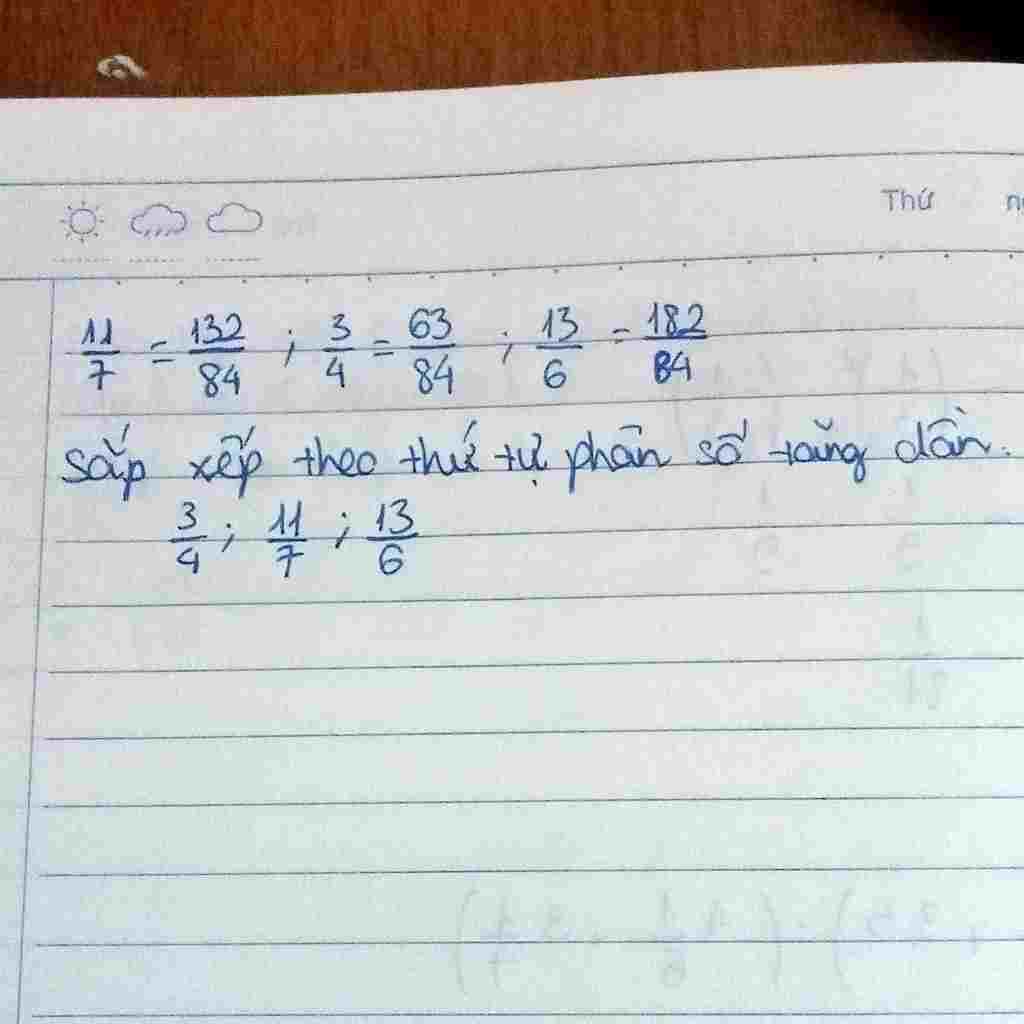 Thứ
11/7 = 132/84 ; 3/4 = 63/84 ; 13/6 = 182/84
sắp xếp theo thứ tự phân số tăng dần.
3/4 ; 11/7 ; 13/6